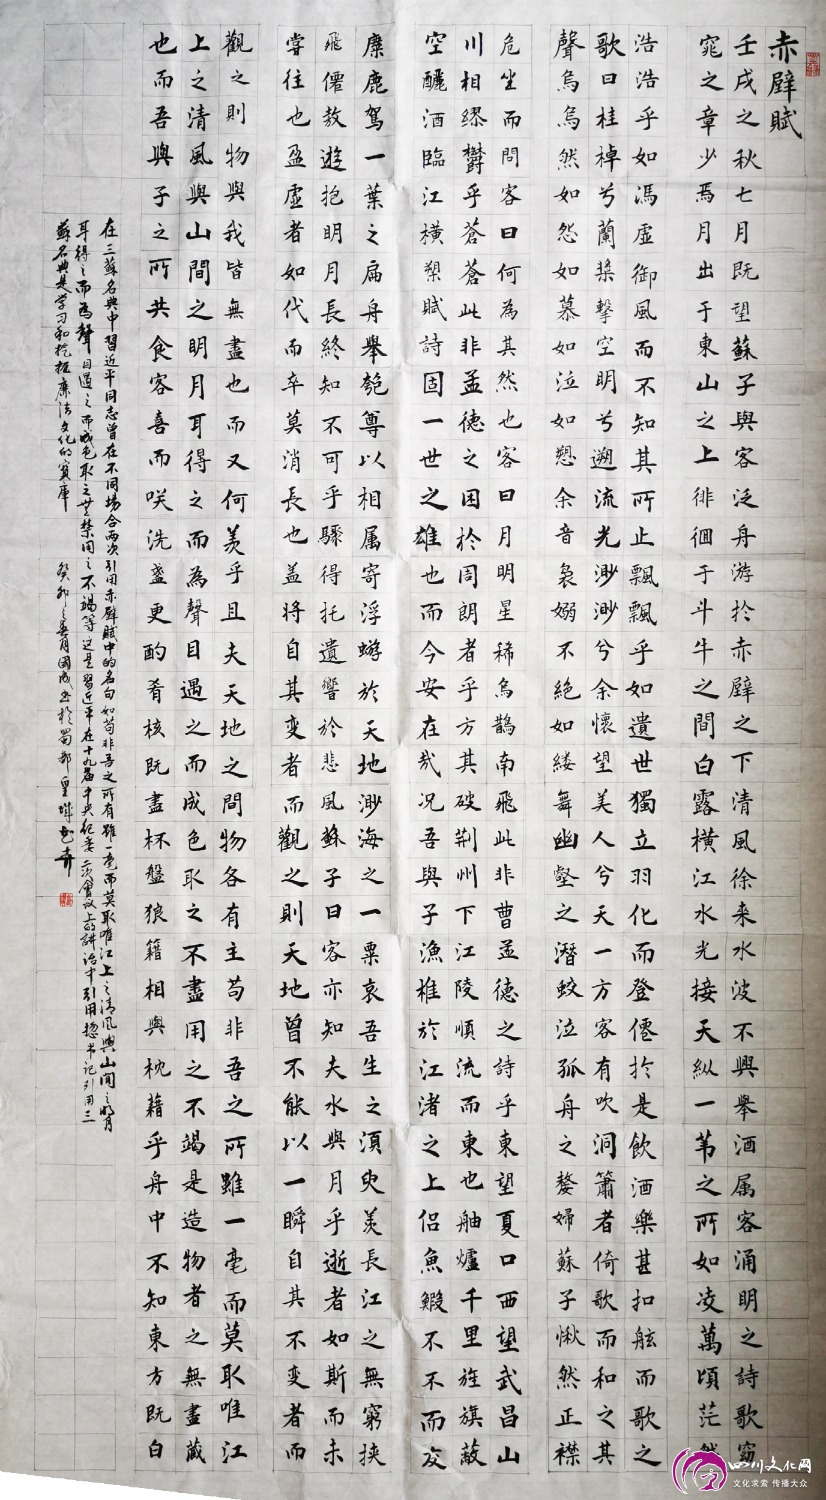 赤壁賦
壬戌之秋七月既望蘇子與客泛舟游於赤壁之下清風徐来水波不興舉酒属客涌明之詩歌窈
窕之章少焉月出于東山之上徘徊于斗牛之間白露横江水光接天縱一苇之所如凌萬頃茫然
浩浩乎如馮虚御風而不知其所止飄飄乎如遺世獨立羽化而登僊於是飲酒樂甚扣舷而歌之
歌曰桂棹兮蘭槳擊空明兮遡流光渺渺兮余懷望美人兮天一方客有吹洞簫者倚歌而和之其
聲烏烏然如怨如慕如泣如愬余音袅嫋不絶如縷舞幽壑之潛蛟泣孤舟之嫠婦蘇子愀然正襟
危坐而問客曰何為其然也客曰月明星稀烏鵲南飛此非曹孟德之詩乎東望夏口西望武昌山
川相繆欝乎蒼蒼此非孟德之困於周朗者乎方其破荆州下江陵順流而東也舳爐千里旌旗蔽
空釃酒臨江横槊賦詩固一世之雄也而今安在哉况吾與子漁樵於江渚之上侣魚鰕不不而友
麋鹿駕一葉之扁舟舉匏尊以相属寄浮蝣於天地渺海之一粟哀吾生之須臾羡長江之無窮挟
飛僊敖遊抱明月長終知不可乎驟得托遺響於悲風蘇子曰客亦知夫水與月乎逝者如斯而未
嘗往也盈虚者如代而卒莫消長也盖將自其変者而觀之則天地曾不能以一瞬自其不変者而
觀之則物與我皆無盡也而又何羡乎且夫天地之間物各有主苟非吾之所雖一毫而莫取唯江
上之清風與山間之明月耳得之而為聲目遇之而成色取之不盡用之不竭是造物者之無盡藏
也而吾與子之所共食客喜而咲洗盞更酌肴核既盡杯盤狼籍相與枕藉乎舟中不知東方既白
在三蘇名典中習近平同志曾在不同場合两次引用赤壁賦中的名句如苟非吾之所有雖一毫而莫取唯江上之清風與山間之明月
耳得之而為聲目遇之而成色取之無禁用之不竭等这是習近平在十九届中央纪委二次會议上的讲话中引用揔书记引用三
蘇名典是学习和挖掘廉洁文化的寳庫 癸卯之春月國成书於蜀都皇城
四川文化网
文化求索 传播大众